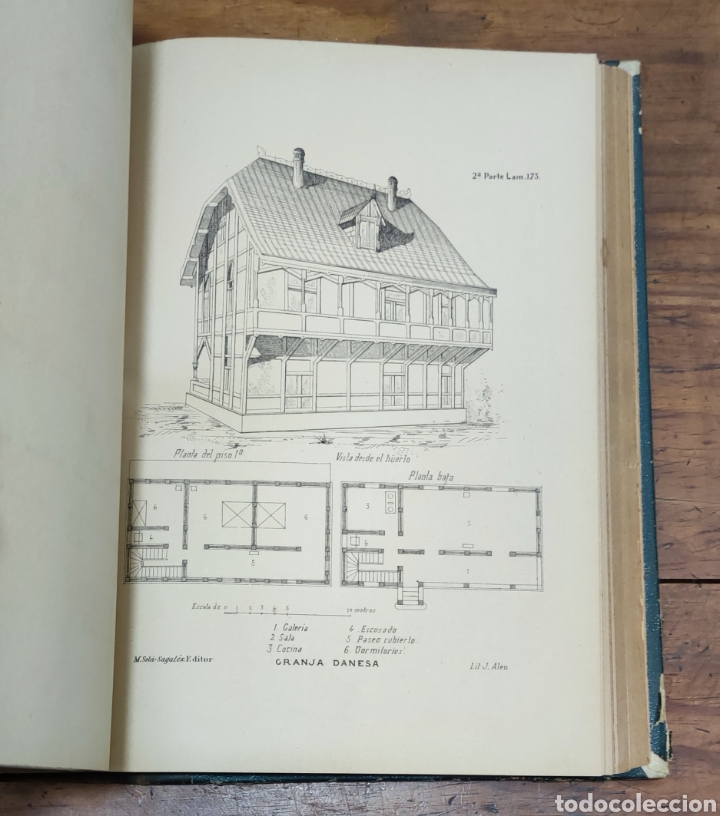 2ª Parte Lam. 173.
Planta del piso 1º
Vista desde el huerto
Planta baja
6
6
6
4
5
3
4
1
Escala de 0 1 2 3 4 5 10 metros
1 Galeria
2 Sala
3 Cocina
4 Escusado
5 Paseo cubierto
6 Dormitorios
M. Solá-Sagalés: Editor
GRANJA DANESA
Lit J. Aleu.
todocoleccion